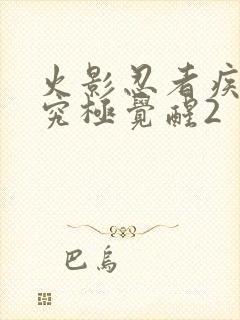 火影忍者疾
究極覺醒2
巴烏